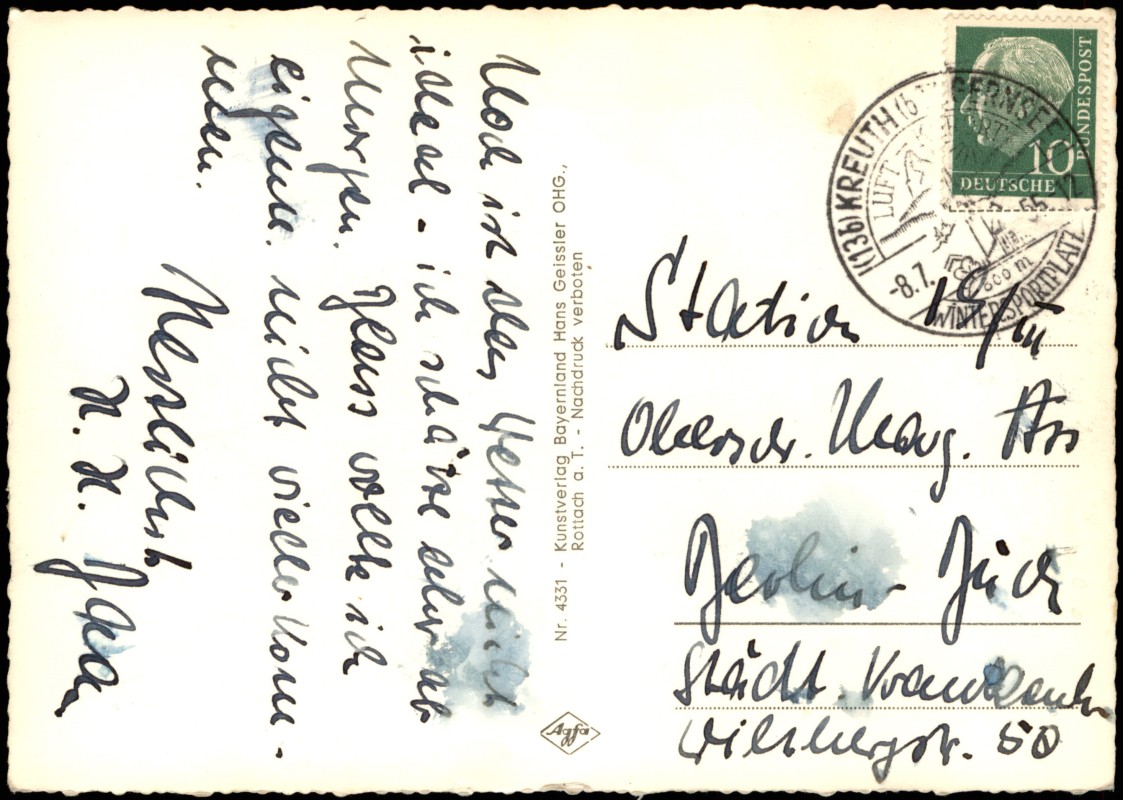 Noch ist das Wetter nicht
ideal - ich schätze aber ab
Morgen. Blass wollte ich
eigentl. nicht wiederkom-
men.
Herzlichst
H. H.
Nr. 4331 - Kunstverlag Bayernland Hans Geissler OHG.,
Rottach a. T. - Nachdruck verboten
Agfa
BUNDESPOST
10
DEUTSCHE
(13b) KREUTH (b. TEGERNSEE)
LUFT
-8.7. 55
800 m
WINTERSPORTPLATZ
Station
Oberschw. Marg.
Berlin - Buch
Städt. Krankenh.
Wiltbergstr. 50